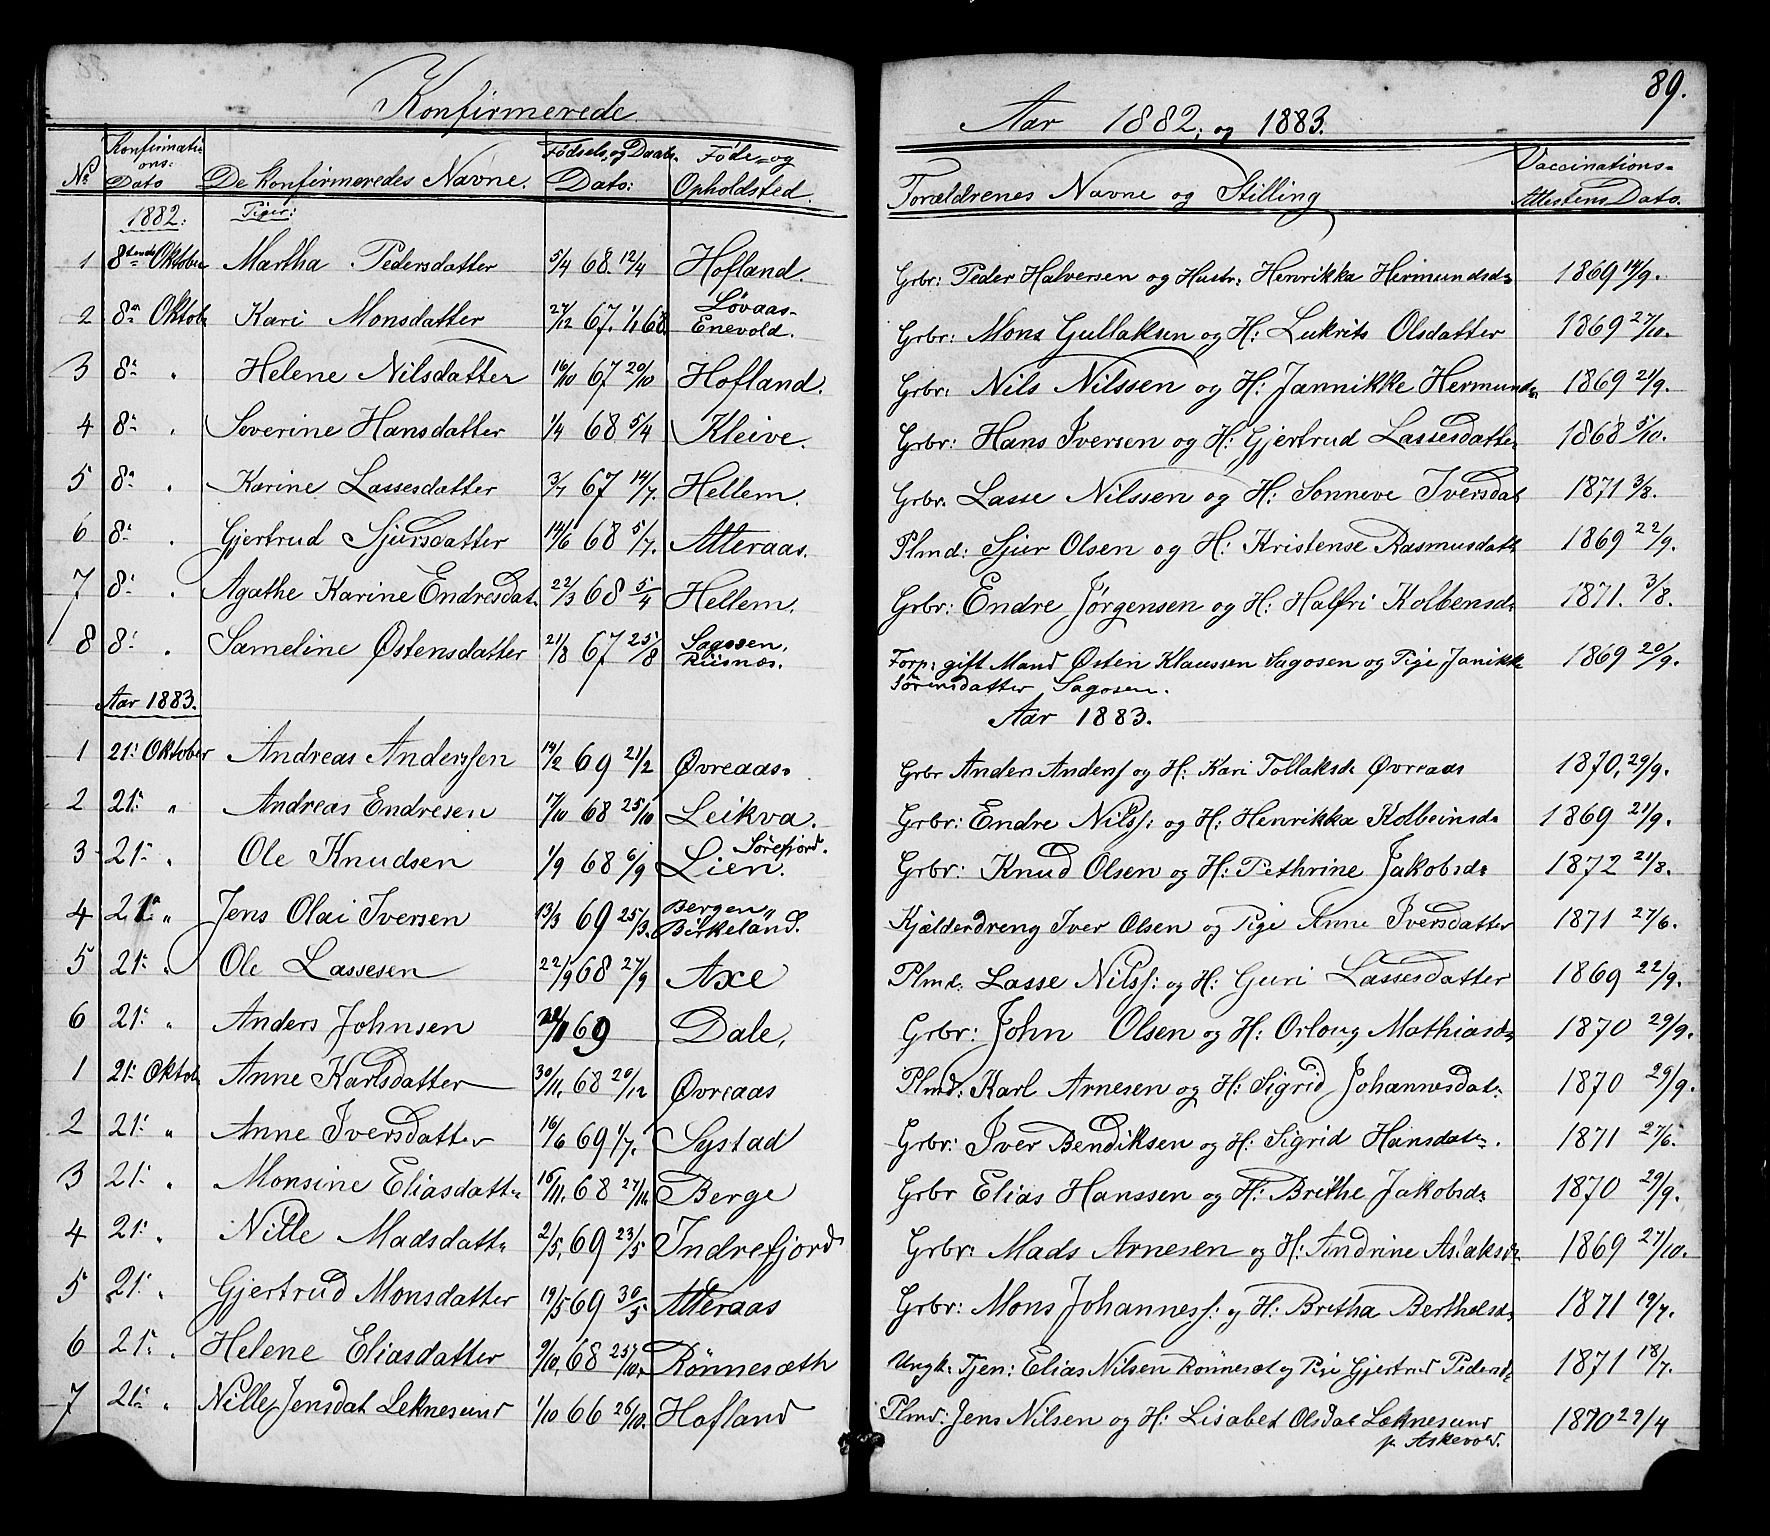 Konfirmerede
Aar 1882, og 1883.
89.
No Konfirmations: Dato De Konfirmeredes Navne. Fødsels, og Daabs. Dato: Føde= og Opholdsted. Forældrenes Navne og Stilling Vaccinations= Attestens Dato.
1882: Piger:
1 8tende Oktober Martha Pedersdatter 5/4 68. 12/4 Hofland. Grbr: Peder Halversen og Hustr: Henrikka Hermundsd: 1869 14/9.
2 8de Oktob: Kari Monsdatter 27/12 67. 1/1 68. Løvaas- Enevold. Grbr: Mons Gullaksen og H: Lukrits Olsdatter 1869 27/10.
3 8: " Helene Nilsdatter 16/10 67 20/10 Hofland. Grbr: Nils Nilssen og H: Jannikke Hermunds: 1869 21/9.
4 8: " Severine Hansdatter 1/4 68 5/4 Kleive. Grbr: Hans Iversen og H: Gjertrud Lassesdatter 1868 5/10.
5 8: " Karine Lassesdatter 3/7 67 14/7. Hellem. Grbr. Lasse Nilssen og H: Sonneve Iversdat 1871 3/8.
6 8: " Gjertrud Sjursdatter 14/6 68 5/7. Atteraas. Plmd: Sjur Olsen og H: Kristense Rasmusdatt: 1869 22/9.
7 8: " Agathe Karine Endresdat: 22/3 68 5/4 Hellem. Grbr: Endre Jørgensen og H: Halfri Kolbensd: 1871. 3/8.
8 8: " Sameline Østensdatter 21/8 67 25/8 Sagosen, Riisnæs. Forp: gift Mand Østen Klaussen Sagosen og Pige Janikke 1869 20/9.
Sørensdatter Sagosen.
Aar 1883. Aar 1883.
1 21: Oktober Andreas Anderssen 14/2 69 21/2 Øvreaas. Grbr Anders Anderss og H: Kari Tollaksd: Øvreaas 1870, 29/9.
2 21: " Andreas Endresen 17/10 68 25/10 Leikva. Grbr: Endre Nilss: og H: Henrikka Kolbeinsd: 1869 21/9.
3 21: " Ole Knudsen 1/9 68 6/9 Lien. Sørefjord. Grbr: Knud Olsen og H: Pethrine Jakobsd: 1872 21/8.
4 21: " Jens Olai Iversen 13/3 69 25/3. Bergen " Birkeland. Kjælderdreng Iver Olsen og Pige Anne Iversdatter 1871 27/6.
5 21: " Ole Lassesen 22/9 68 27/9 Axe Plmd: Lasse Nilss: og H: Guri Lassesdatter 1869 22/9.
6 21: " Anders Johnsen 69 Dale, Grbr: John Olsen og H: Orloug Mathiasd: 1870 29/9.
1 21: Oktob: Anne Karlsdatter 30/11. 68 20/12 Øvreaas Plmd: Karl Arnesen og H: Sigrid Johannesdat: 1870 29/9.
2 21: " Anne Iversdatter 16/6 69 1/7. Systad Grbr: Iver Bendiksen og H: Sigrid Hansdat:. 1871 27/6.
3 21: " Monsine Eliasdatt: 16/11. 68 27/11. Berge Grbr Elias Hanssen og H: Brithe Jakobsd: 1870 29/9.
4 21: " Nille Madsdatt: 2/5. 69 23/5 Indrefjord Grbr: Mads Arnesen og H: Andrine Aslaksd: 1869 27/10.
5 21: " Gjertrud Monsdatter 19/5 69 30/5 Atteraas Grbr: Mons Johanness: og H: Britha Bertholsd: 1871 19/7.
6 21: " Helene Eliasdatter 9/10. 68 25/10. Rönnesæth Ungk: Tjen: Elias Nilsen Rönnesæt og Pige Gjertrud Pedersd: 1871 18/7.
7 21: " Nille Jensdat Leknesund 1/10 66 26/10. Hofland Plmd: Jens Nilsen og H: Lisabet Olsdat Leknesund 1870 29/4
p. Askevold.